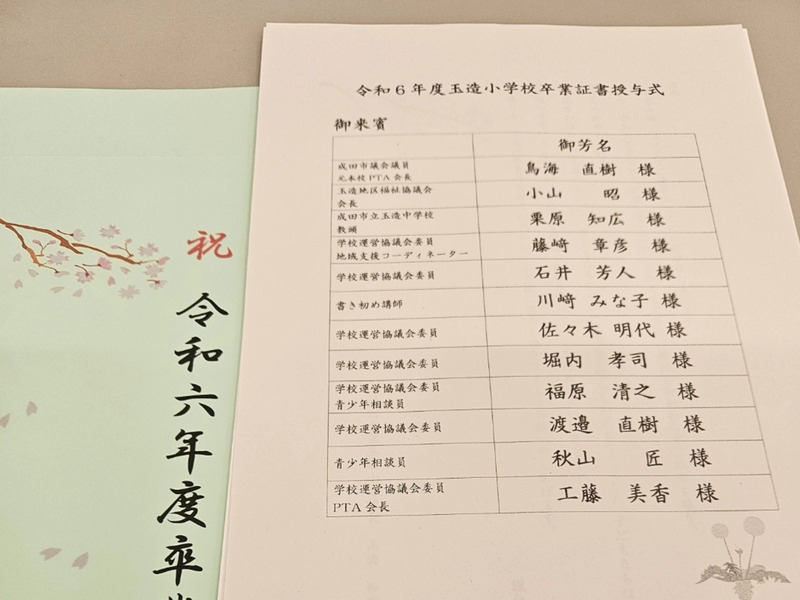 祝
令和六年度卒
令和6年度玉造小学校卒業証書授与式
御来賓
御芳名
成田市議会議員
元本校PTA会長
鳥海 直樹 様
玉造地区福祉協議会
会長
小山 昭 様
成田市立玉造中学校
教頭
栗原 知広 様
学校運営協議会委員
地域支援コーディネーター
藤﨑 章彦 様
学校運営協議会委員
石井 芳人 様
書き初め講師
川﨑 みな子 様
学校運営協議会委員
佐々木 明代 様
学校運営協議会委員
堀内 孝司 様
学校運営協議会委員
青少年相談員
福原 清之 様
学校運営協議会委員
渡邉 直樹 様
青少年相談員
秋山 匠 様
学校運営協議会委員
PTA会長
工藤 美香 様